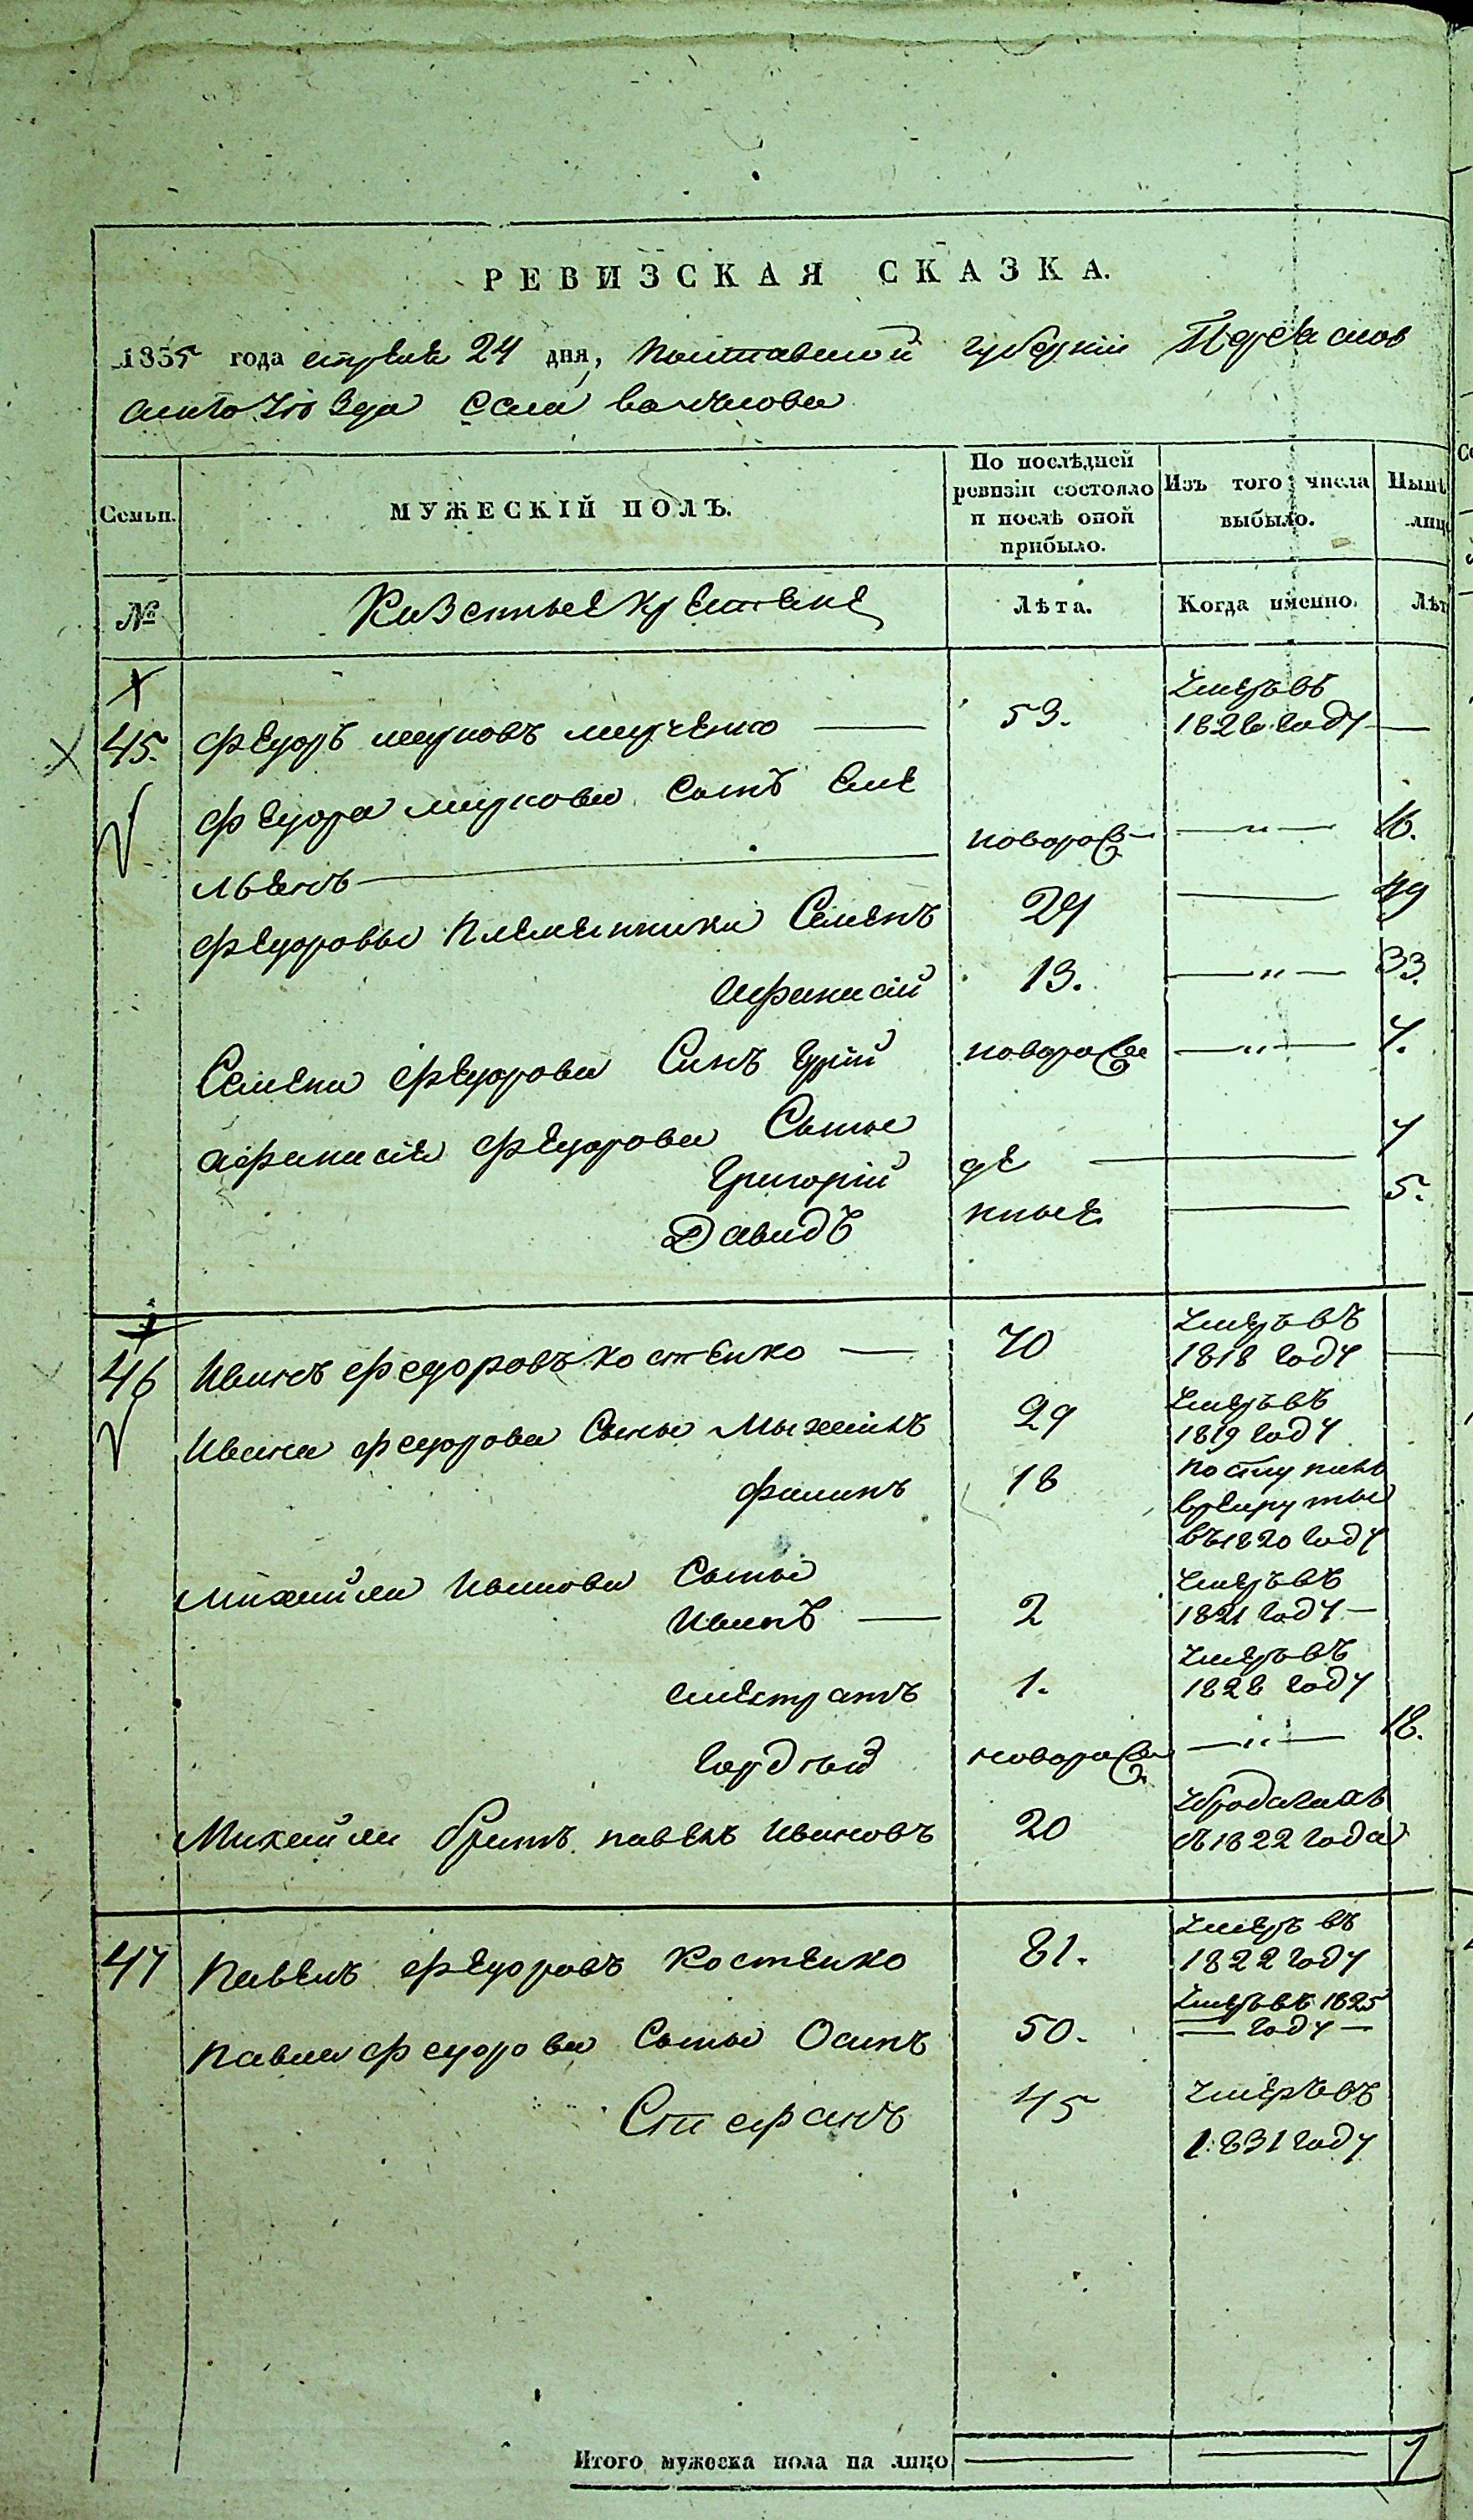 РЕВИЗСКАЯ СКАЗКА.
1835 года апреля 24 дня, Полтавской губернии Переяслов
скаго уезда села
Семьи. МУЖЕСКІЙ ПОЛЪ. По послѣдней ревизіи состояло и послѣ оной прибыло. Изъ того числа выбыло.
№ Казенные крестяне Лѣта. Когда именно.
45. Федоръ марковъ марченко — 53. умеръ въ 1826 году —
Федора маркова сынъ Еме
льянъ — новорож — " — 16.
Федоровы племянники Семенъ 29 — 49
Афанасий 13. — " — 33.
Семена федорова Синъ Юрий новорож — " — 7.
афанасия федорова Сыны
Григорій де — 7
Давидъ нные — 5.
46 Иванъ федоровъ костенко — 70 умеръ въ 1818 году —
Ивана федорова Сыны Михаилъ 29 умеръ въ 1819 году
филипъ 18 поступилъ в рекруты въ 1820 году
михайла Иванова Сыны
Иванъ — 2 умеръ въ 1821 году —
1. умеръ въ 1828 году
гордѣй новорож — " — 18.
Михайла братъ павелъ Ивановъ 20 съ 1822 года
47 Павелъ федоровъ костенко 81. умеръ въ 1822 году
павла федорова Сыны Осипъ 50. умеръ въ 1825 — году —
Стефанъ 45 умеръ въ 1831 году
Итого мужеска пола на лицо — — 7